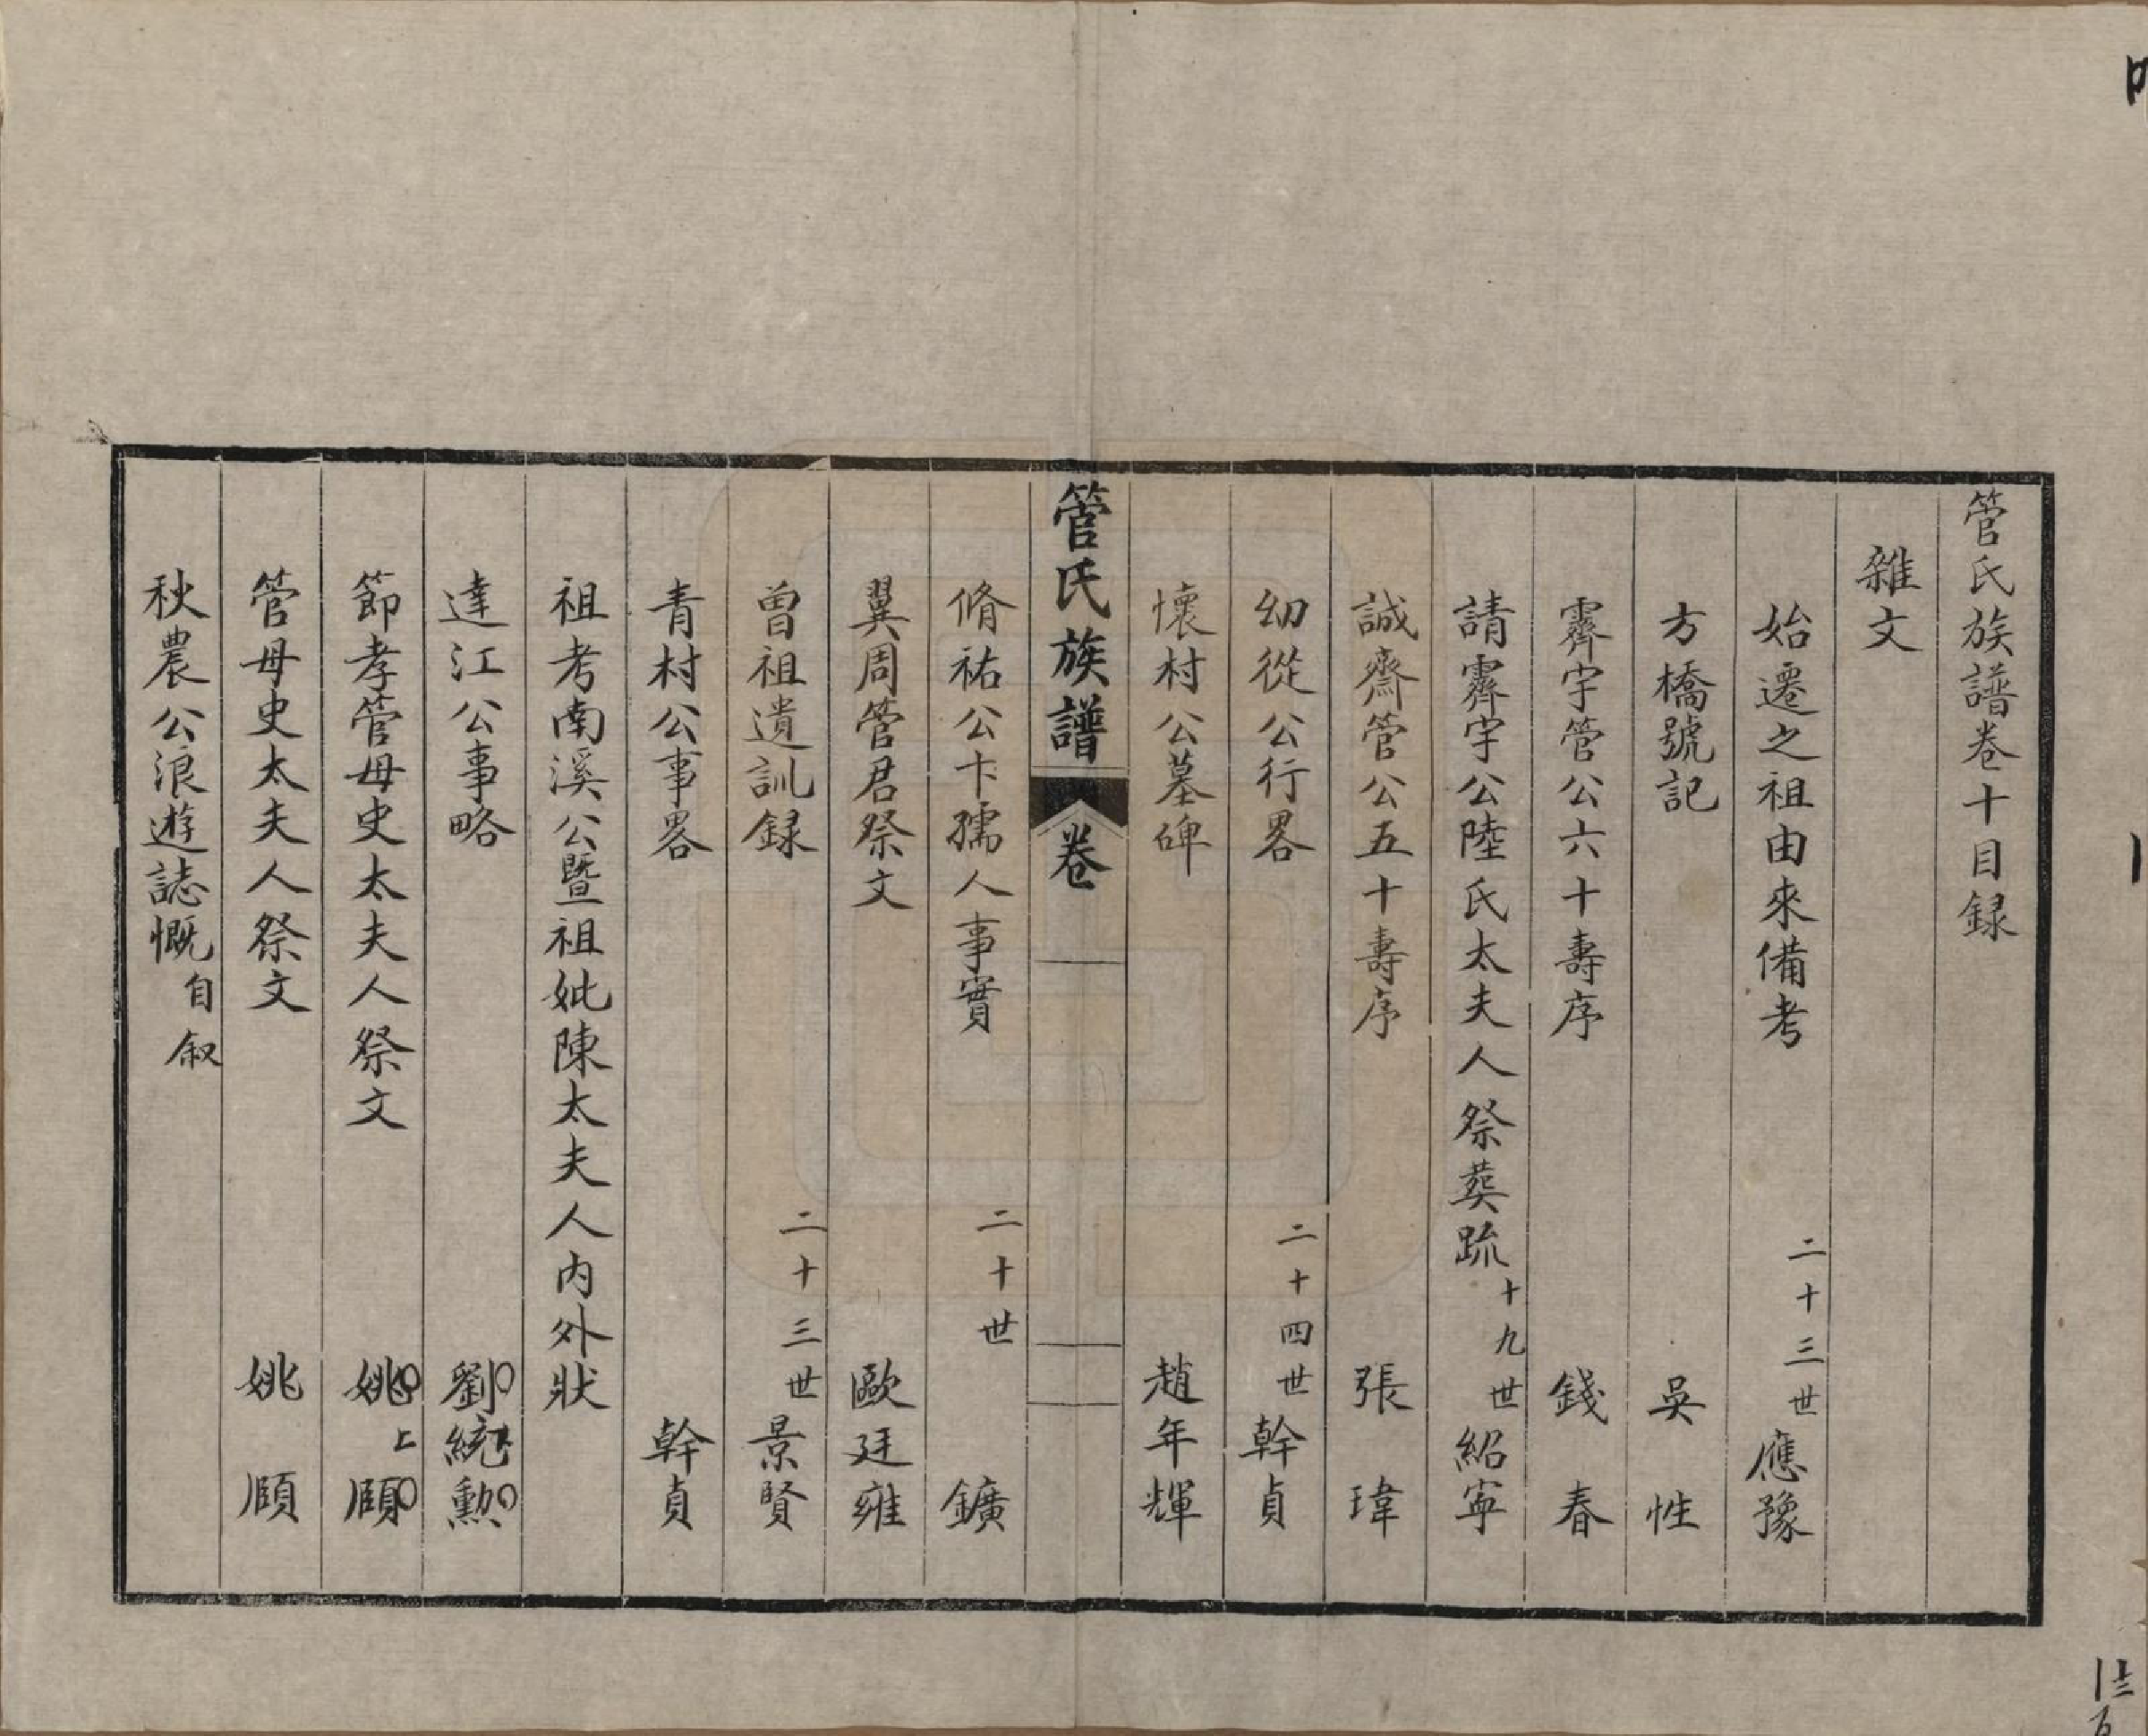 管氏族譜卷十目録
雜文
始遷之祖由來備考 二十三世 應豫
方橋號記 吳性
霽宇管公六十壽序 錢春
請霽宇公陸氏太夫人祭葬疏 十九世 紹寧
誠齋管公五十壽序 張瑋
幼從公行畧 二十四世 幹貞
懷村公墓碑 趙年輝
管氏族譜 卷
脩祐公卞孺人事實 二十世 鑛
翼周管君祭文 歐廷雍
曾祖遺訓録 二十三世 景賢
青村公事畧 幹貞
祖考南溪公暨祖妣陳太夫人内外狀
達江公事略 劉統勲
節孝管母史太夫人祭文 姚頤
上
管母史太夫人祭文 姚頤
秋農公浪遊誌慨 自叙